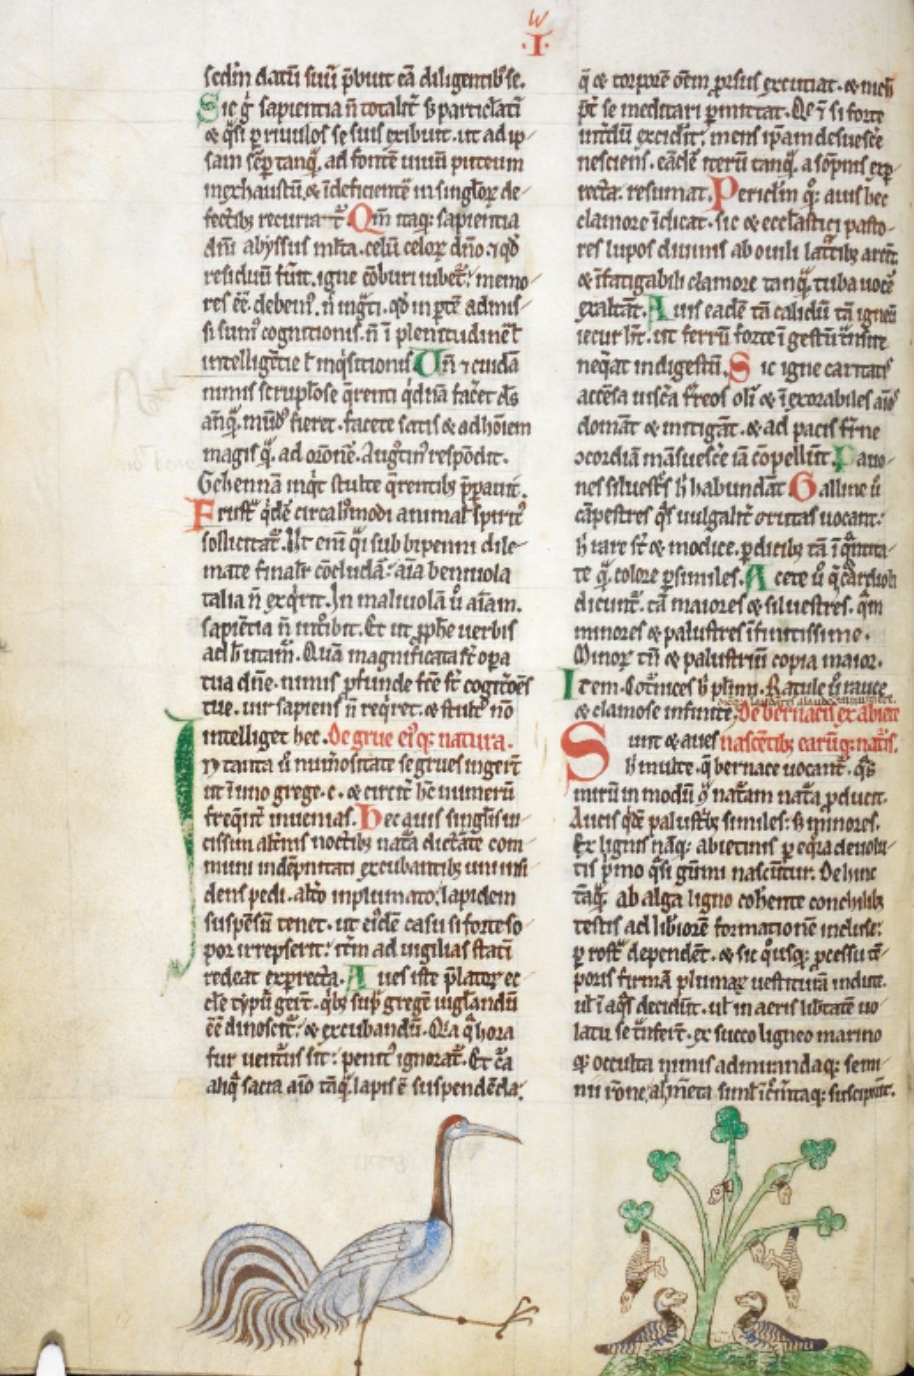 W
.I.
sedm datū suū p̄buit eā diligentibꝰ se.
Sic gͥ sapientia n̄ totalit̄ sꝫ particłati
& qͣsi ꝑ riuulos se suis exibuit. ut ad ip
sam sēꝑ tanqͣ ad fontē uiuū puteum
inexhaustū & īdeficientē in singłoꝝ de
fectibꝫ recurrat͛. Qm̄ itaqꝫ sapientia
dn̄i abyssus młta. celū celoꝝ dn̄o. ⁊ qd̓
residuū fūit. igne cōburi iubet͛. memo
res eē debemꝰ. n̄ inqͥti. qd̓ in ꝑtē admis
si sumꝰ cognitionis. n̄ ī plenitudinē ł
intelligētie ł inqͥsitionis. Vn̄ ⁊ cuidā
nimis scrupłose q̄renti qͥd n̄a facēt dꝰs
an̄qͣ mūdꝰ fieret. facete satis & ad hōiem
magis qͣ ad orōnē. Augꝰtinꝰ respōdit.
Gehennā inqͥt stulte q̄rentibꝫ p̄ꝑauit.
Frustͣ qͥdē circa hꝰmodi animał spiritꝰ
sollicitat͛. Ut eni qͣsi sub bipenni dile
mate finalit̄ cōcludā. aīa beniuola
talia n̄ exqͥrit. In maliuolā ū aīam.
sapiētia n̄ intͦibit. Et ut ꝓphe uerbis
ad h̓ utam̄. Quā magnificata st̄ opa
tua dn̄e. nimis ꝓfunde fc̄e st̄ cogitōes
tue. uir sapiens n̄ req̄ret. & stultꝰ nō
intelliget hec. De grue eiꝰqꝫ natura.
In tanta ū numͦositate se grues ingerūt
ut ī uno grege .c. & circit̄ hͨ numerū
freqn̄t inuenias. hec auis singłis ui
cissim alt̄nis noctibꝫ natͣa dictāte com
muni indēpnitati excubantibꝫ uni insi
dens pedi. alt̄o inplumato lapidem
suspēsū tenet. ut eiꝰdē casu si forte so
por irrepserit. itm̄ ad uigilias statī
redeat exꝑrecta. Aues iste p̄latoꝝ ec
cłe typū gerūt. qͥbꝫ supͣ gregē uigłandū
eē dinoscit͛. & excubandū. Qͥa qͣ hora
fur uenturꝰ sit. penitꝰ ignorat͛. Et cͣa
aliqͣ sacra aīo tāqͣ lapis ē suspendēda.
q̄ & corporē oēm ꝓrsus excutiat. & nich̓
pt̄ se meditari ꝑmittat. Qͥ ī si forte
int̄dū excidit. mens ipam desuescē
nesciens. eādē iterū tanqͣ a sōpnis exꝑ
recta. resumat. Pericłm qͦqꝫ auis hec
clamore īdicat. sic & eccłastici pasto
res lupos diuinis ab ouili latͣtibꝫ arcēt.
& īfatigabili clamore tanqͣ tuba uocē
exaltāt. Auis eadē tā calidū tā igneū
iecur hꝫ. ut ferrū forte ī gestū tͣnsire
neqͣat indigestū. Sic igne caritatis
accēsa uiscͣa ferͦos oli & īexorabiles aīos
domāt & mitigāt. & ad pacis fr̄ne
ↄcordiā māsuescē iā cōpellūt. Pauo
nes siluestͣs h̓ habundāt. Galline ū
cāpestres qͣs uulgalit̄ grutas uocant.
h̓ rare st̄ & modice. ꝑdicibꝫ tā ī qͣntita
te qͣ colore ꝑsimiles. Acete ū q̄ cardioli
dicunt͛. tā maiores & siluestres. qͣm
minores & palustres īfinitissime.
Minoꝝ tn̄ & palustriū copia maior.
Item. Cotͦnices h̓ plīmi. Ratule ū rauce
& clamose infinite. De bernacis ex abiete
nascētibꝫ earūqꝫ natͥs.
Sunt & aues
h̓ multe. q̄ bernace uocant͛. qͣs
mirū in modū qͣ natͣam natͣa ꝓducit.
Aucis qͥdē palustͥbꝫ similes: sꝫ minores.
Ex lignis nāqꝫ abietinis ꝑ eqͦra deuolu
tis pͥmo qͣsi gūmi nascūtur. Dehinc
tāqͣ ab alga ligno coherente conchilibꝫ
testis ad libiorē formationē incluse.
ꝑ rostͣ dependēt. & sic qͦusqꝫ ꝓcessu tē
poris firmā plumaꝝ uestiturā indute.
uł ī aqͣs decidūt. uł in aeris libtatē uo
latu se tͣnsferūt. ex succo ligneo marino
qꝫ occulta nimis admirandaqꝫ semi
nii rōne alim̄ta simł īcrem̄taqꝫ suscipiūt.